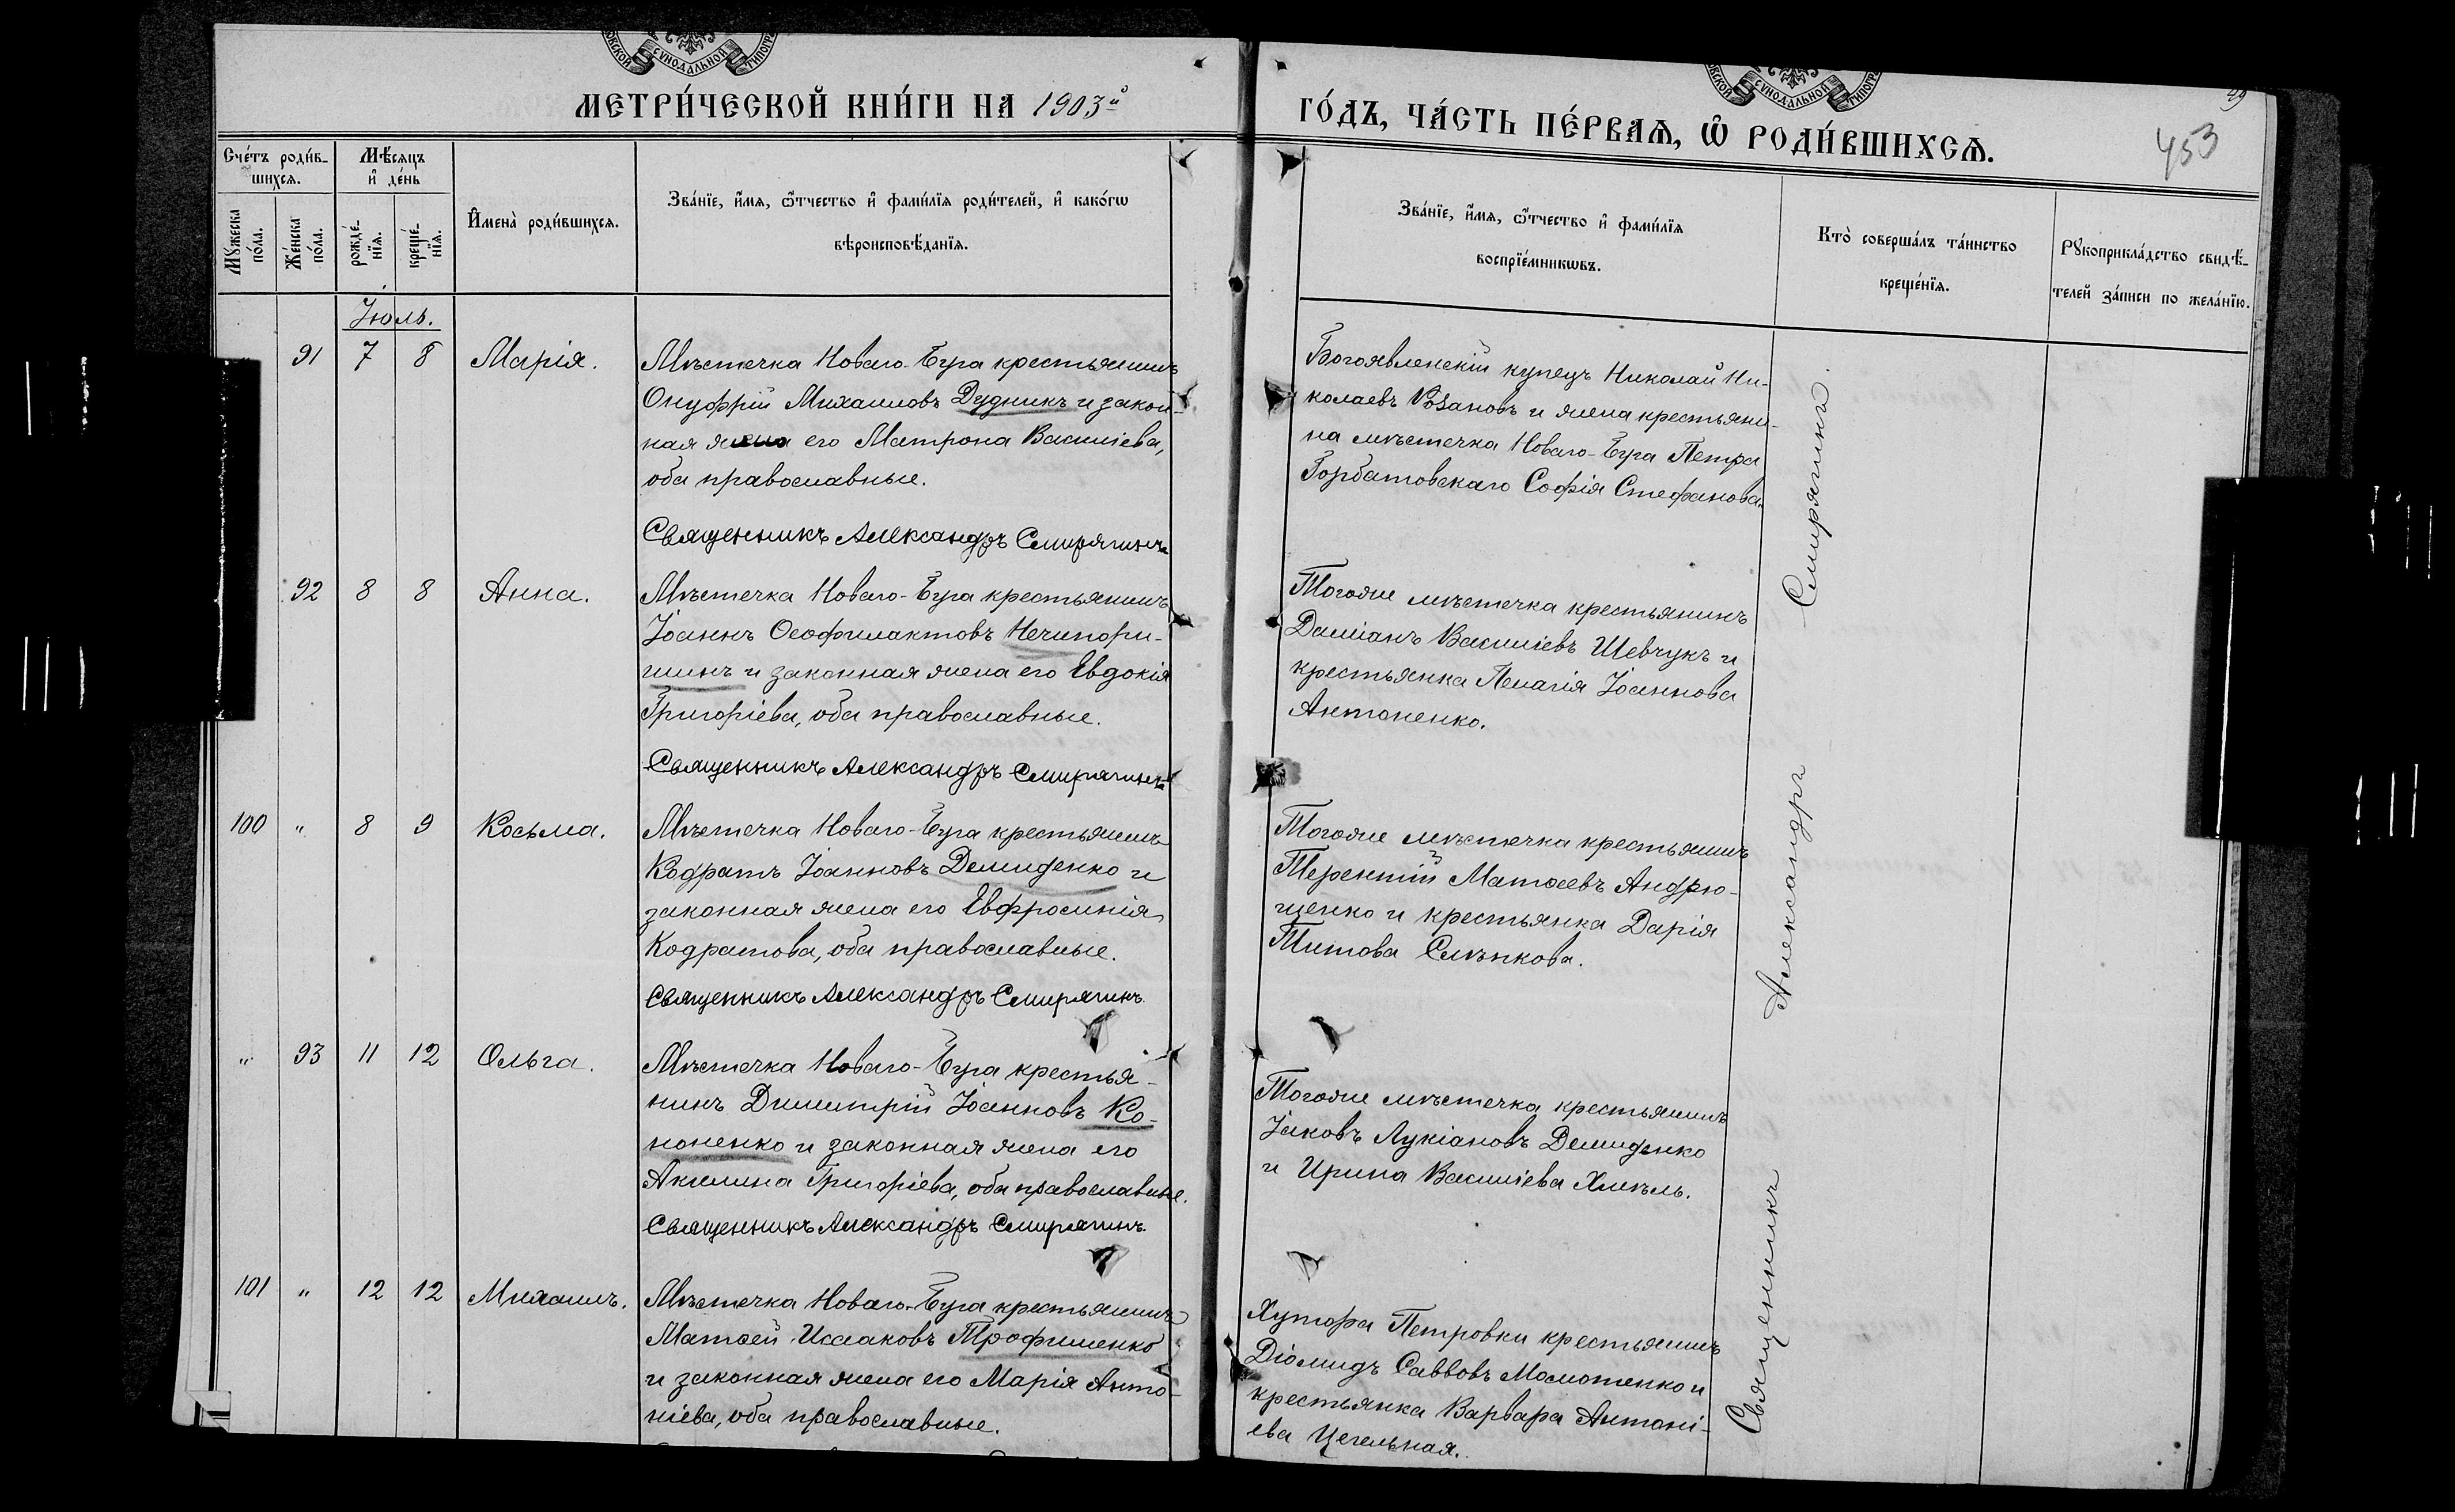 МЕТРИ́ЧЕСКОЙ КНИ́ГИ НА 1903й
ГО́ДЪ, ЧА́СТЬ ПЕ́РВАѦ, Ѿ РОДИ́ВШИХСѦ.
453
Сче́тъ роди́в-
шихсѧ.
Мѣ́сѧцъ
и҆ де́нь
Мꙋ́жеска
по́ла.
Же́нска
по́ла.
рожде́-
нїѧ.
креще́-
нїѧ.
И҆мена̀ роди́вшихсѧ.
Зва́нїе, и҆́мѧ, ѻ҆́тчество и҆ фами́лїѧ роди́телей, и҆ како́гѡ
вѣроисповѣ́данїѧ.
Зва́нїе, и҆́мѧ, ѻ҆́тчество и҆ фами́лїѧ
воспрїе́мникѡвъ.
Кто̀ соверша́лъ та́инство
креще́нїѧ.
Рꙋкоприкла́дство свидѣ́-
телей за́писи по жела́нїю.
Іюль.
91 7 8 Марія.
Мѣстечка Новаго-Буга крестьянинъ
Онуфрій Михаиловъ Дудникъ и закон-
ная жена его Матрона Василіева,
оба православные.
Священникъ Александръ Смирягинъ
Богоявленскій купецъ Николай Ни-
колаевъ Розановъ и жена крестьяни-
на мѣстечка Новаго-Буга Петра
Горбатовскаго Софія Стефанова.
92 8 8 Анна.
Мѣстечка Новаго-Буга крестьянинъ
Іоаннъ Ѳеофилактовъ Нечипори-
шинъ и законная жена его Евдокія
Григоріева, оба православные.
Священникъ Александръ Смирягинъ
Тогоже мѣстечка крестьянинъ
Даміанъ Василіевъ Шевчукъ и
крестьянка Пелагія Іоаннова
Антоненко.
100 " 8 9 Косьма.
Мѣстечка Новаго-Буга крестьянинъ
Кодратъ Іоанновъ Демиденко и
законная жена его Евфросинія
Кодратова, оба православные.
Священникъ Александръ Смирягинъ.
Тогоже мѣстечка крестьянинъ
Терентій Матѳеевъ Андрю-
щенко и крестьянка Дарія
Титова Слѣпкова.
" 93 11 12 Ольга.
Мѣстечка Новаго-Буга крестья-
нинъ Димитрій Іоанновъ Ко-
ноненко и законная жена его
Акилина Григоріева, оба православные.
Священникъ Александръ Смирягинъ.
Тогоже мѣстечка крестьянинъ
Іаковъ Лукіановъ Демиденко
и Ирина Василіева Хмѣль.
101 " 12 12 Михаилъ.
Мѣстечка Новаго-Буга крестьянинъ
Матѳей Исааковъ Трофименко
и законная жена его Марія Анто-
ніева, оба православные.
Хутора Петровки крестьянинъ
Діомидъ Саввовъ Момотенко и
крестьянка Варвара Антоні-
ева Цегельная.
Священникъ Александръ Смирягинъ.